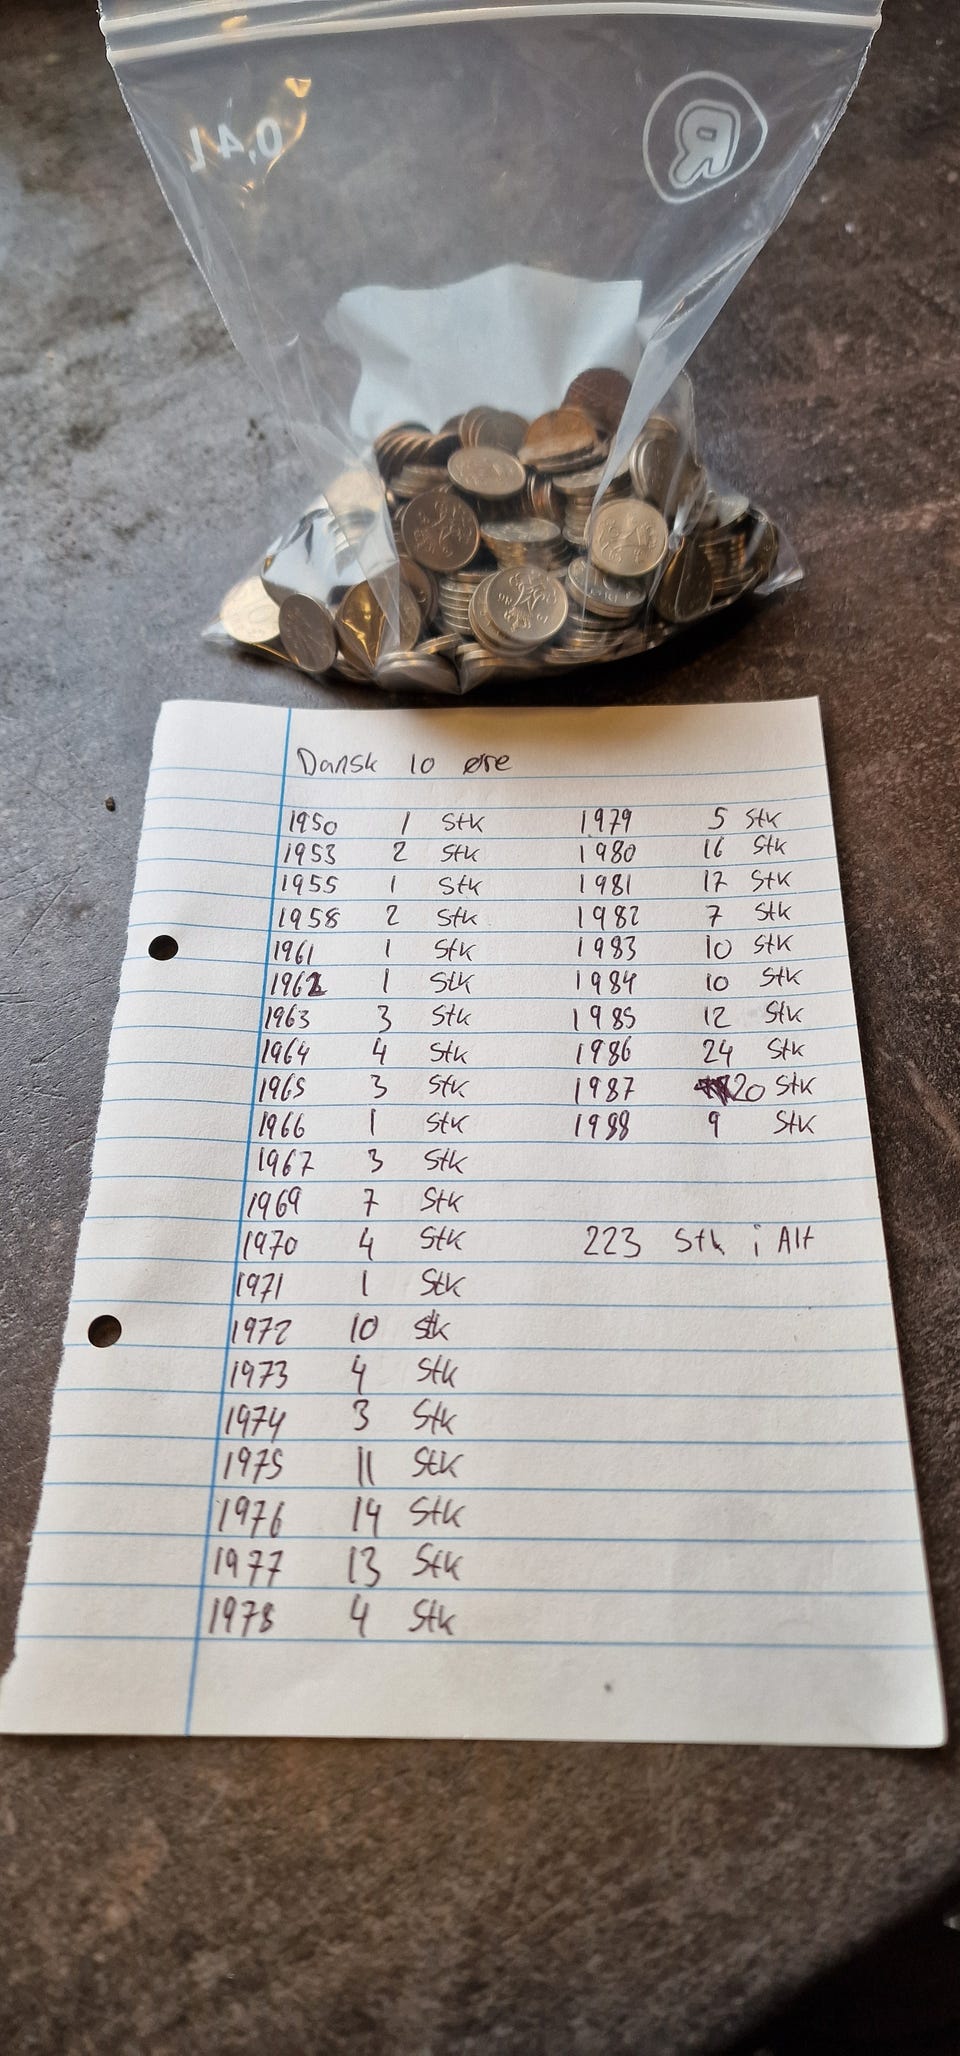 0,4 L
R
Dansk 10 øre
1950 1 Stk
1953 2 Stk
1955 1 Stk
1958 2 Stk
1961 1 Stk
1962 1 Stk
1963 3 Stk
1964 4 Stk
1965 3 Stk
1966 1 Stk
1967 3 Stk
1969 7 Stk
1970 4 Stk
1971 1 Stk
1972 10 stk
1973 4 Stk
1974 3 Stk
1975 11 Stk
1976 14 Stk
1977 13 Stk
1978 4 Stk
1979 5 Stk
1980 16 Stk
1981 17 Stk
1982 7 Stk
1983 10 Stk
1984 10 Stk
1985 12 Stk
1986 24 Stk
1987 20 Stk
1988 9 Stk
223 Stk i Alt